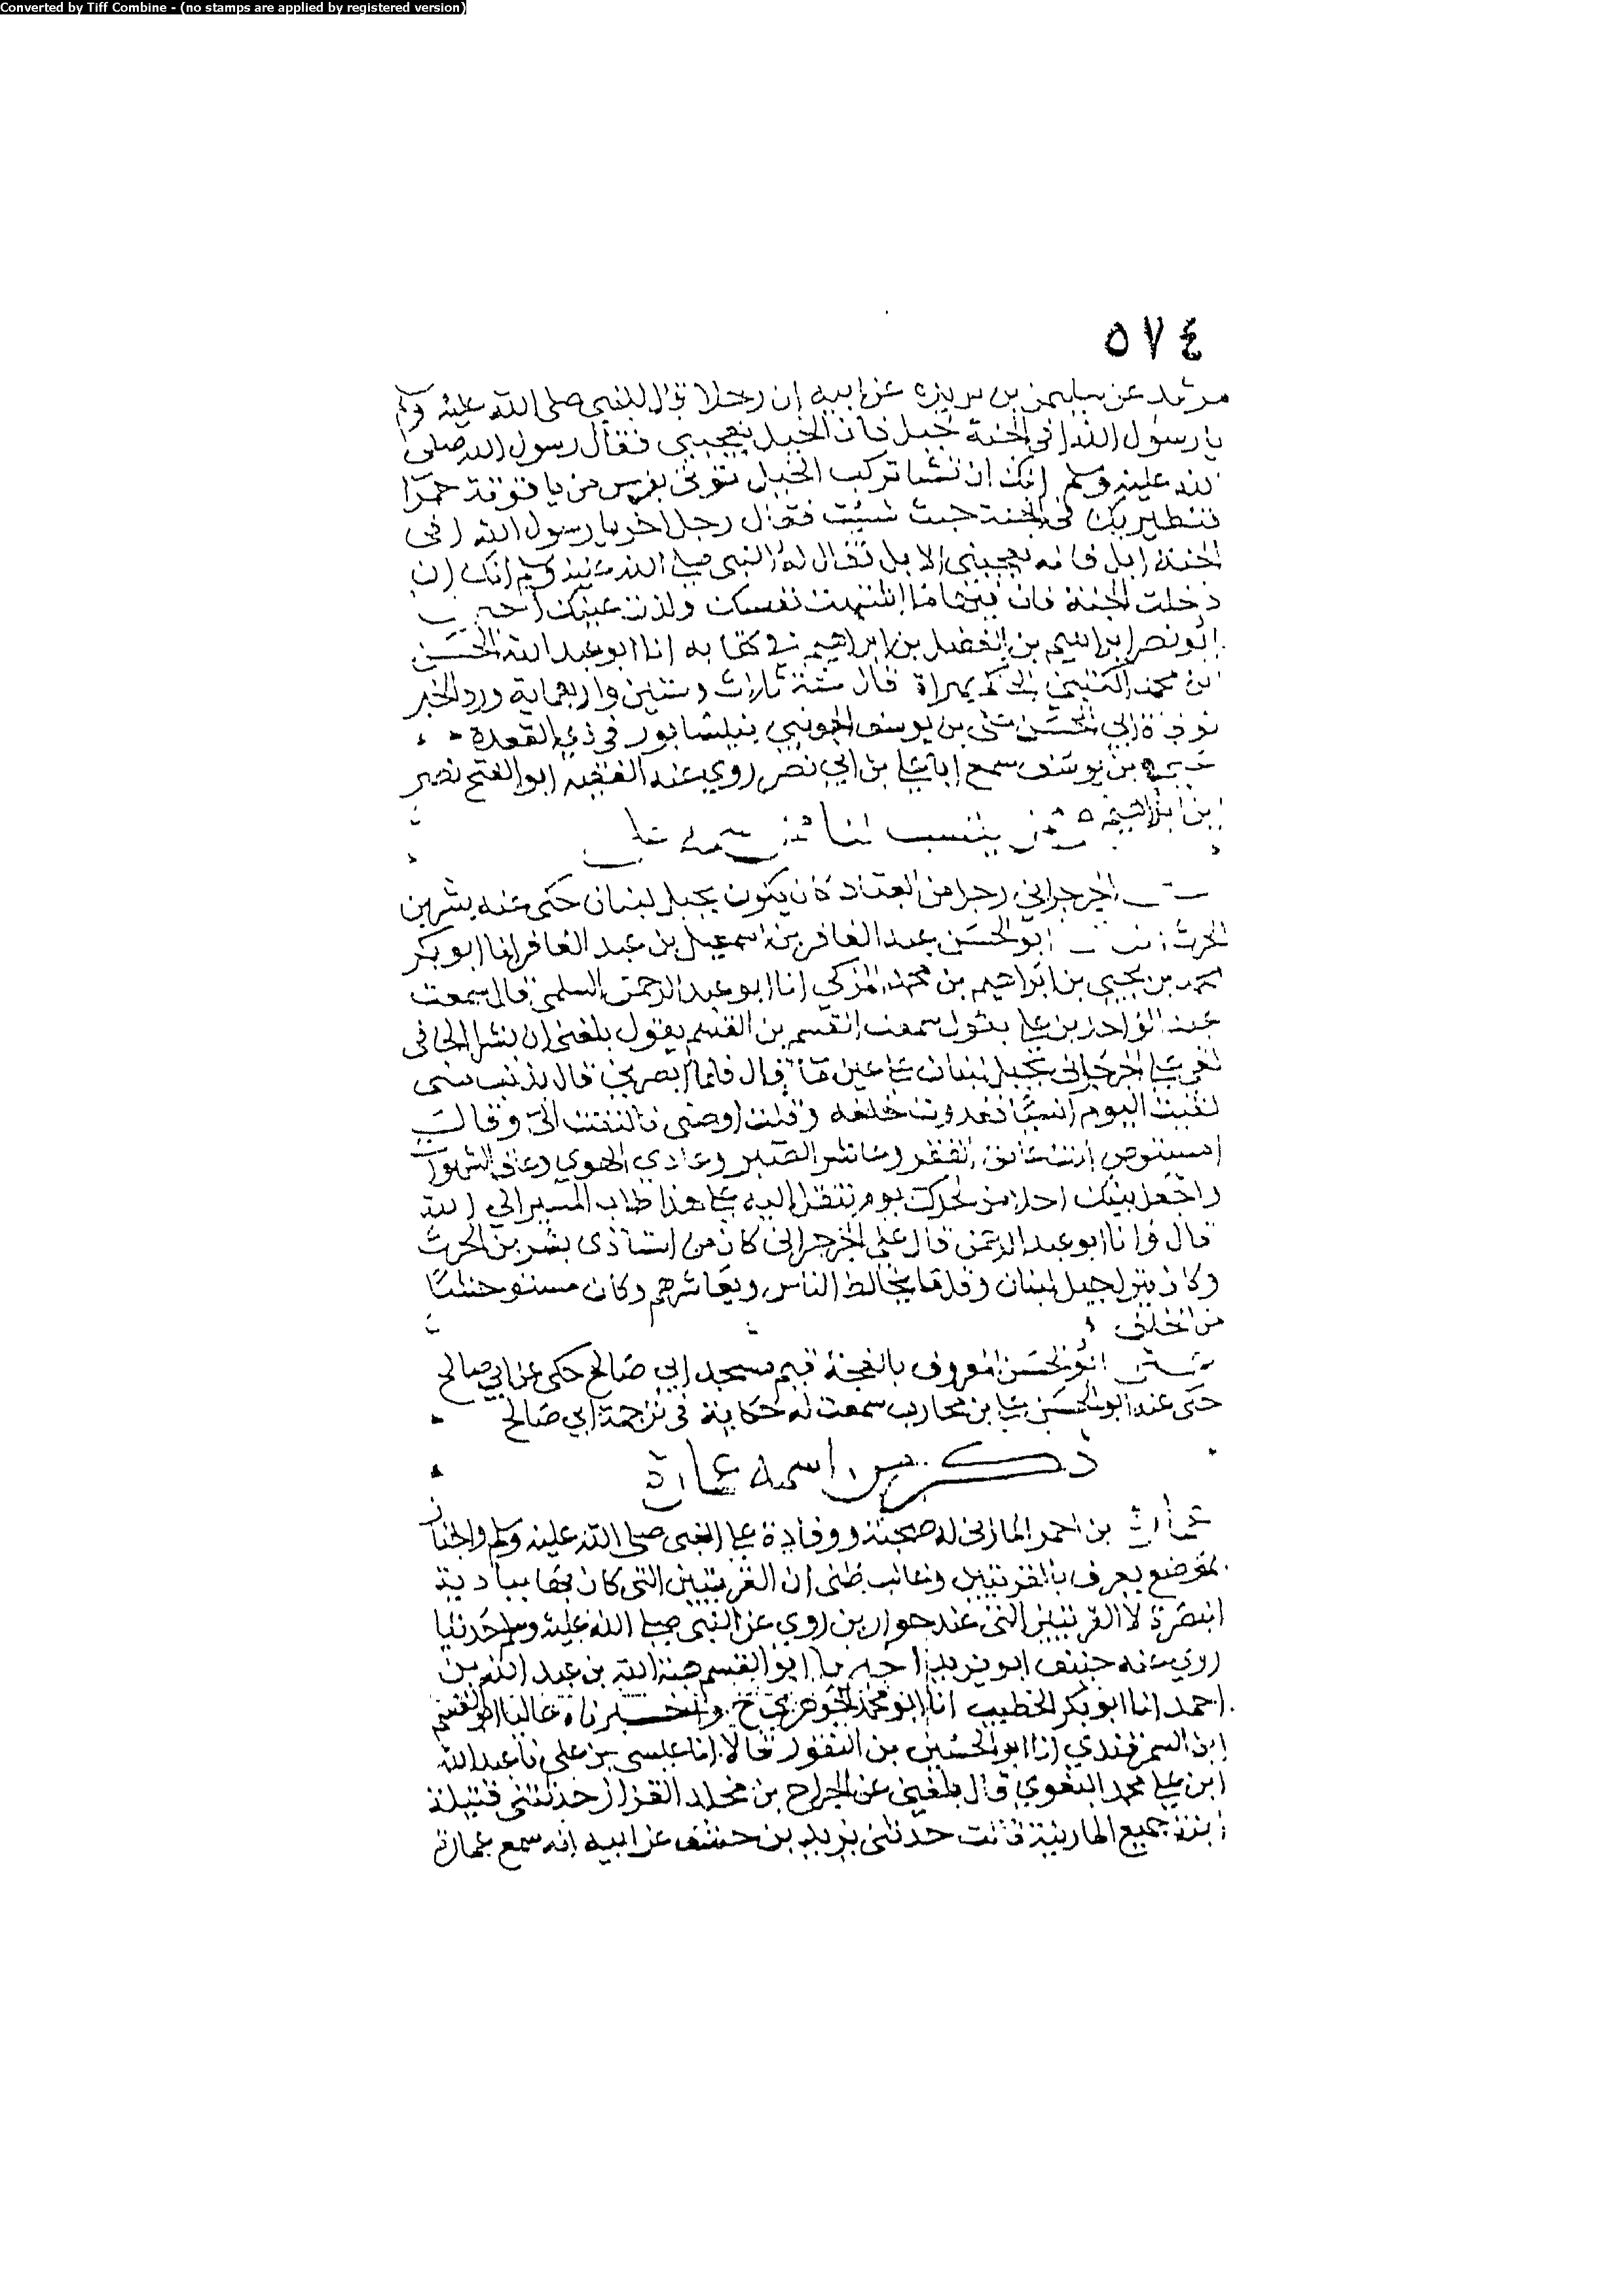 Converted by Tiff Combine - (no stamps are applied by registered version)
٥٧٤
مرثد عن سليمن بن بريده عن ابيه ان رجلا قال للنبي صلى الله عليه وسلم
يا رسول الله افي الجنة خيل فان الخيل يعجبني فقال رسول الله صلى
الله عليه وسلم انك ان تشا تركب الخيل تؤتى بفرس من ياقوتة حمرا
فتطير بك في الجنة حيث شيت فقال رجل اخر يا رسول الله افي
الجنة ابل فانه يعجبني الابل فقال له النبي صلى الله عليه وسلم انك ان
دخلت الجنة فان فيها ما اشتهت نفسك ولذت عينك اخبرنا
ابو نصر ابراهيم بن الفضل بن ابراهيم في كتابه انا ابو عبد الله الحسين
ابن محمد الكتبي الحاكم بهراة قال سنة ثلاث وستين واربعماية ورد الخبر
بوفاة ابي الحسن علي بن يوسف الجويني بنيسابور في ذي القعدة
بن يوسف سمع ابا علي بن ابي نصر روى عنه الفقيه ابو الفتح نصر
ابن ابراهيم ينسب لنا ممن اسمه علي
الجرجراني رجل من العباد كان يكون بجبل لبنان حكى عنه بشر بن
الحرث ابو الحسن عبد الغافر بن اسمعيل بن عبد الغافر انا ابو بكر
محمد بن يحيى بن ابراهيم بن محمد المزكي انا ابو عبد الرحمن السلمي قال سمعت
عبد الواحد بن علي يقول سمعت القسم بن القسم يقول بلغني ان بشر الحافي
لقي علي الجرجراني بجبل لبنان على عين ما قال فلما ابصرني قال بذنب مني
لقيت اليوم انسيا فعدوت خلفه وقلت اوصني فالتفت الي وقال
امستوص انت عانق الفقر وعاشر الصبر وعادي الهوى وعاف الشهوات
واجعل بيتك احلا من لحدك يوم تنقل اليه على هذا طاب المسير الى الله
قال وانا ابو عبد الرحمن قال علي الجرجراني كان من استاذي بشر بن الحرث
وكان ينزل جبل لبنان وقلما يخالط الناس ويعاشرهم وكان مستوحشا
من الخلق
ابو الحسن المعروف قيم مسجد ابي صالح حكى عن ابي صالح
حكى عنه ابو الحسن علي بن محارب سمعت له حكاية في ترجمة ابي صالح
ذكر من اسمه عمارة
عمارة بن احمر المازني له صحبة ووفادة على النبي صلى الله عليه وسلم
بموضع يعرف بالقريتين وغالب ظني ان القريتين التي كان بها ببادية
البصرة لا القريتين التي عند حوارين روى عن النبي صلى الله عليه وسلم حديثا
روى عنه حنيف ابو يزيد اخبرنا ابو القسم هبة الله بن عبد الله بن
احمد انا ابو بكر الخطيب انا ابو محمد الجوهري ح واخبرناه عاليا ابو القسم
ابن السمرقندي انا ابو الحسين بن النقور قالا انا عيسى بن علي نا عبد الله
ابن محمد البغوي قال بلغني عن الجراح بن مخلد القزاز حدثتني قتيلة
ابنة جميع المازنية قالت حدثني يزيد بن حنيف عن ابيه انه سمع عمارة